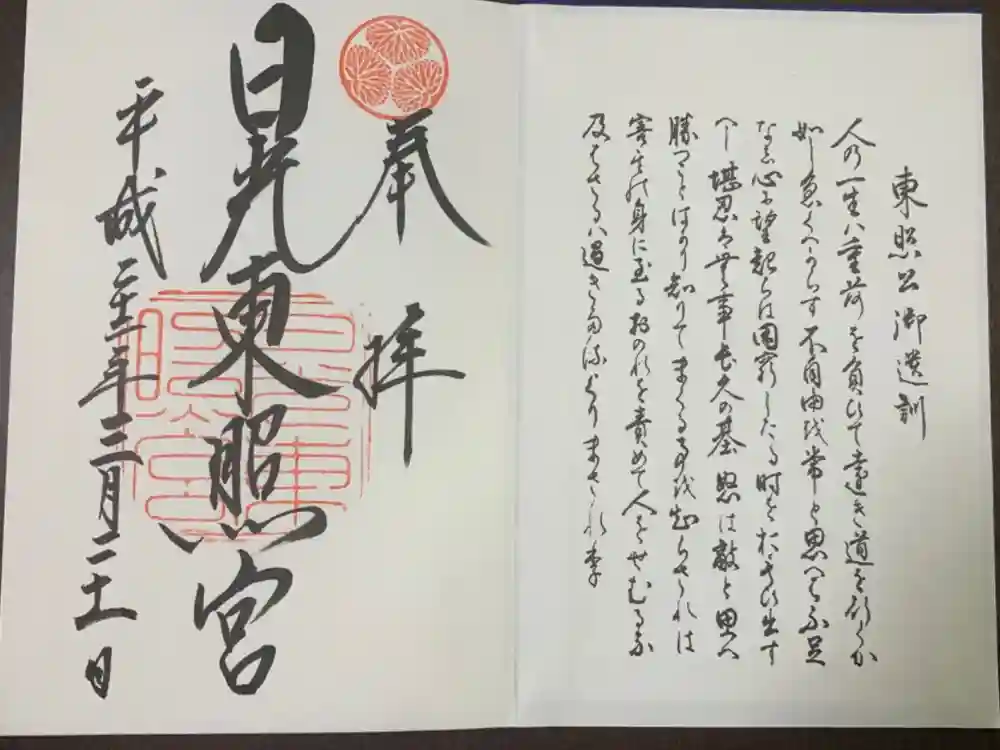 東照公御遺訓
人の一生ハ重荷を負ひて遠き道を行くか
如し急くへからす 不自由を常と思へは不足
なし心に望起らは困窮したる時をおもひ出す
へし 堪忍は無事長久の基 怒は敵と思へ
勝つことはかり知りてまくる事を知らされは
害其の身に至るおのれを責めて人をせむるな
及はさるハ過きたるよりまされり
奉拝
日光東照宮
平成二十二年三月二十一日